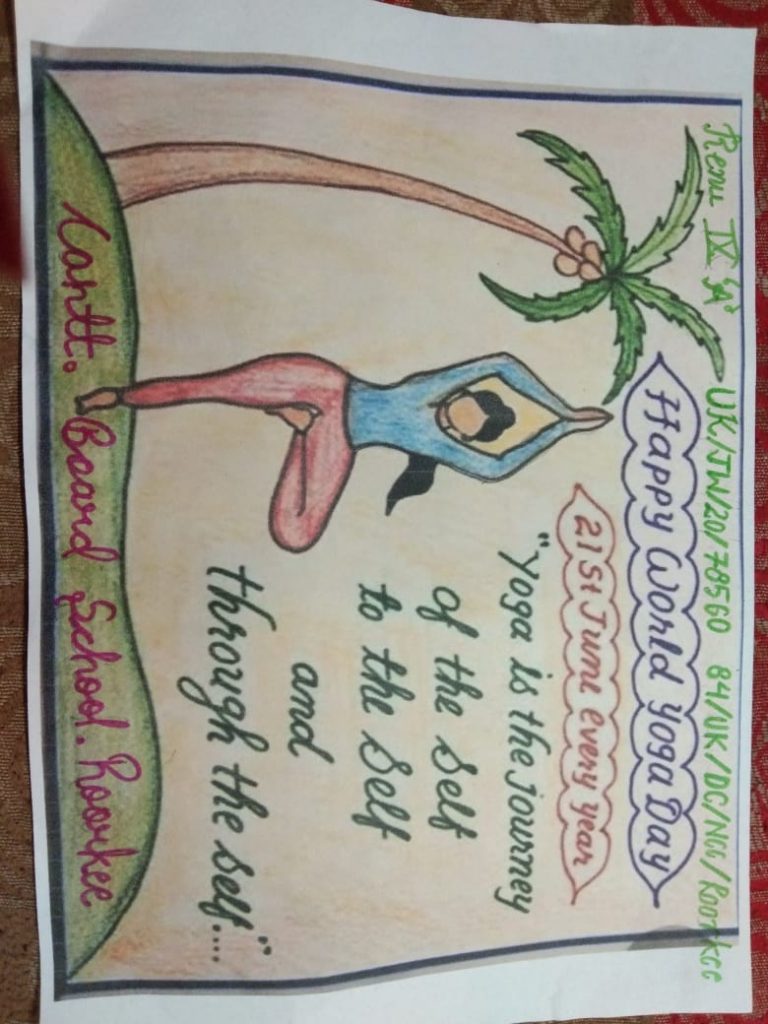 Renu IX 'A' UK/JW/20/78560 84/UK/DG/NCC/Roorkee
Happy World Yoga Day
21st June every year
"Yoga is the journey
of the self
to the self
and
through the self...."
Cantt. Board School. Roorkee